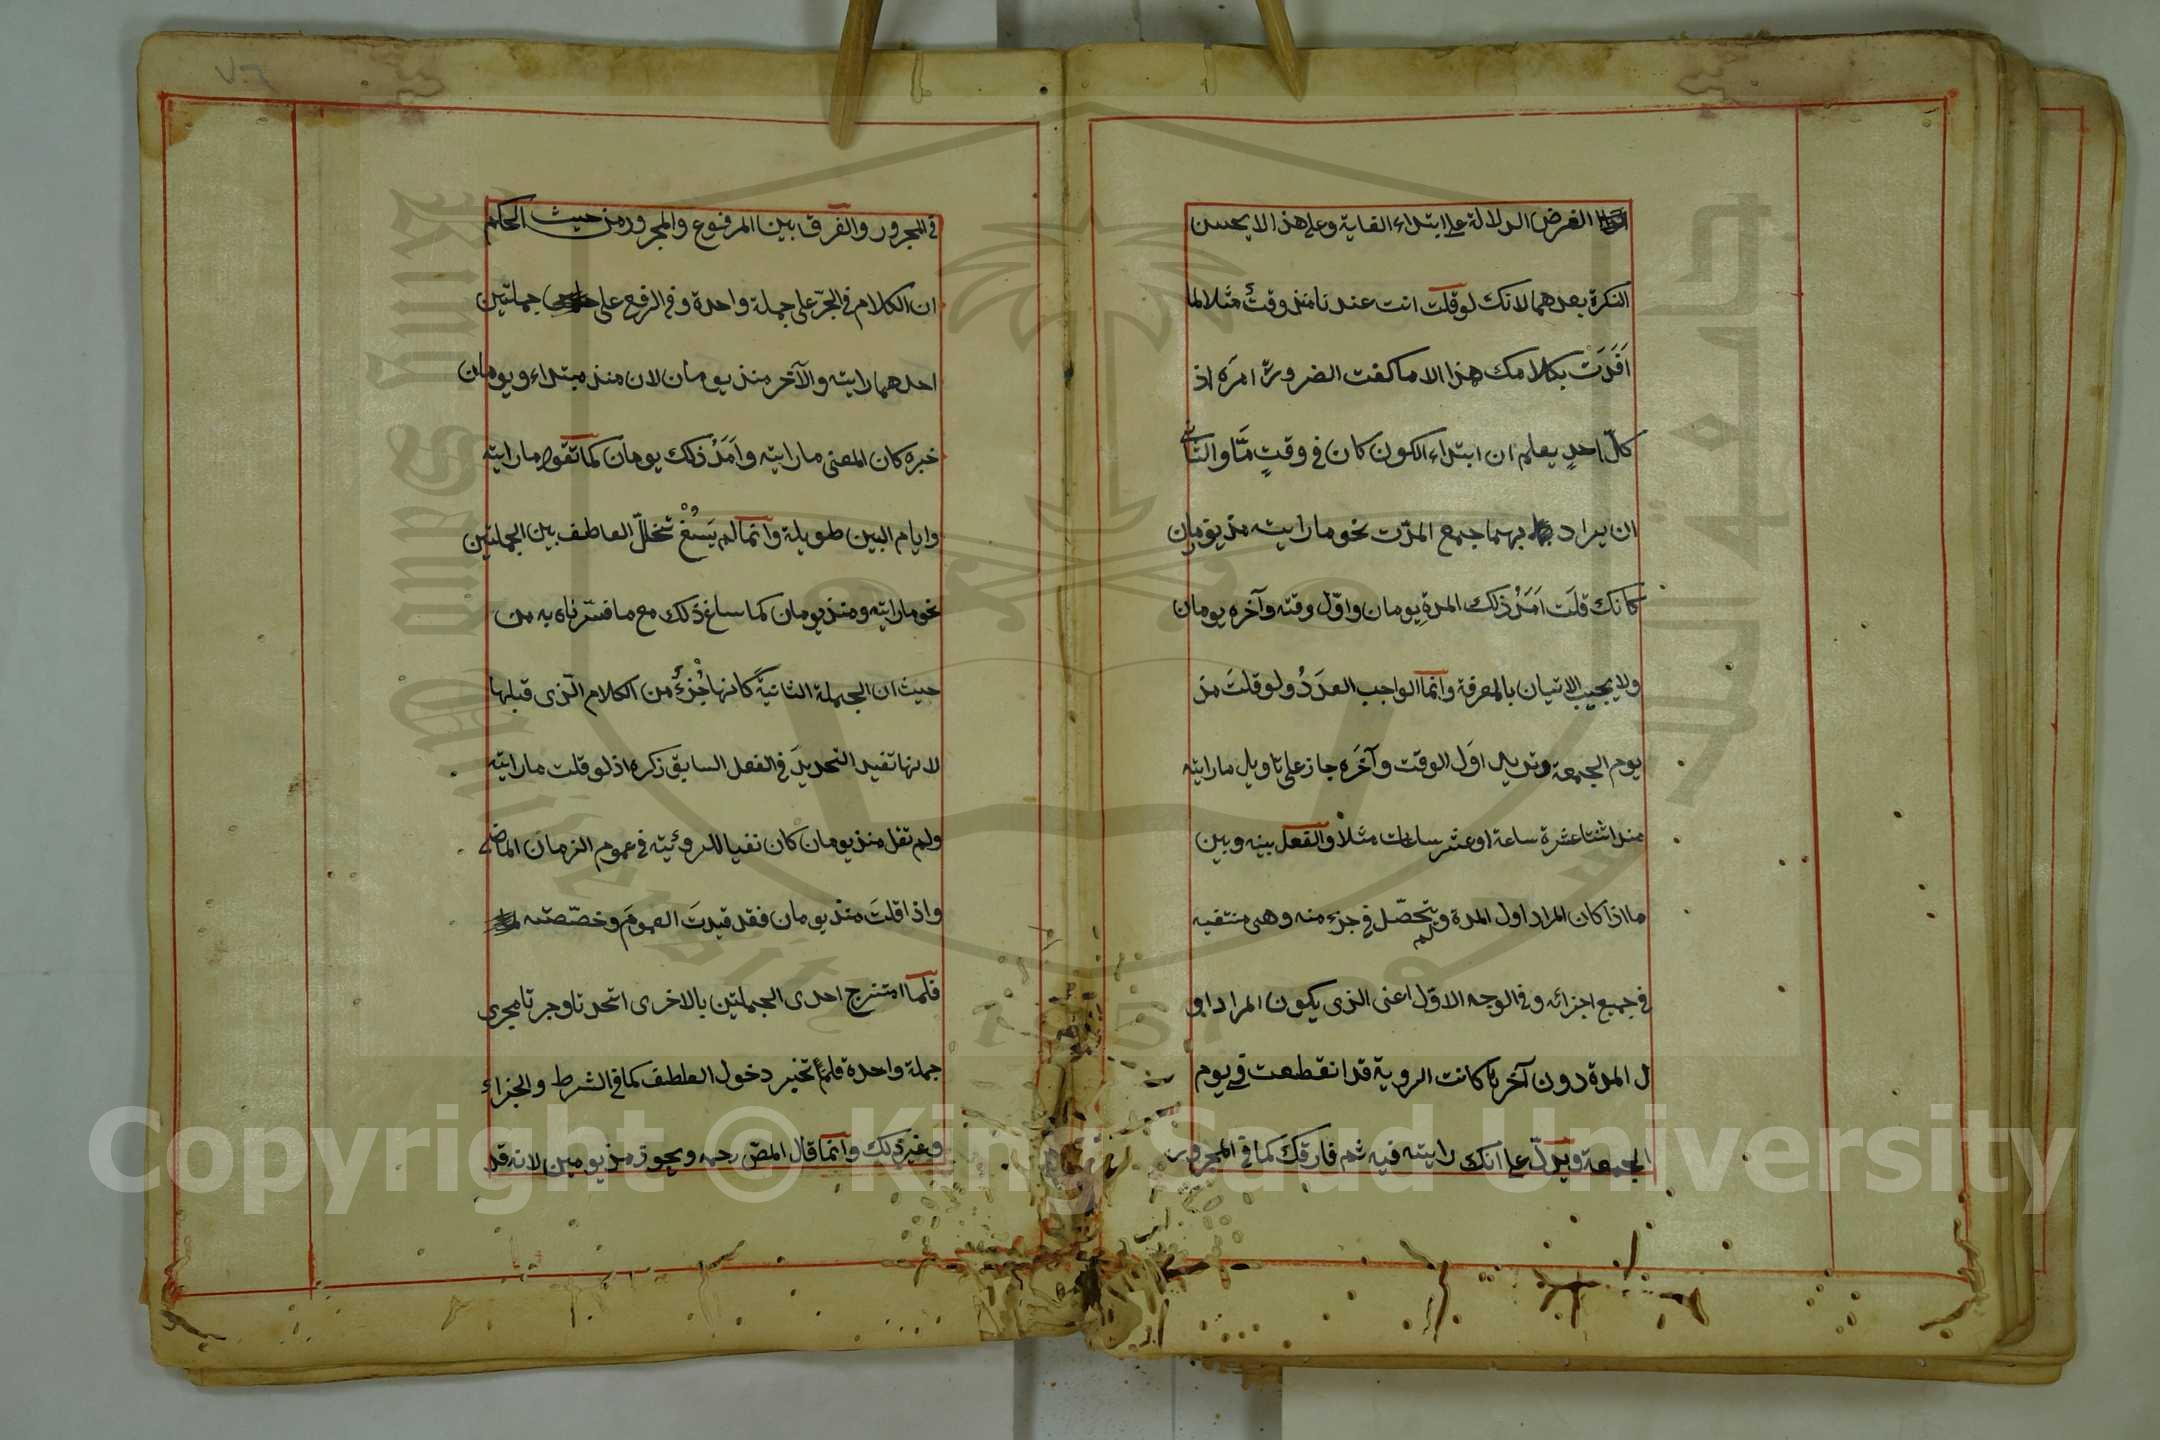 الغرض الدلالة على ابتداء الغاية وعلى هذا لا يحسن
النكرة بعدهما لانك لو قلت انت عندنا منذ وقتٌ مثلا لما
اَفَدَتْ بكلامك هذا الا ما كفت الضرورة امره اذ
كلّ احدٍ يعلم ان ابتداء الكون كان في وقتٍ مَّا والثاني
ان يراد بهما جميع المدّت نحو ما رايته مذ يومان
كانك قلَت اَمَدُ ذلك المدةِ يومان واوّل وقته وآخره يومان
ولا يجيب الاتيان بالمعرفة وانما الواجب العدَدُ ولو قلتَ مذ
يوم الجمعة وتريد اوّل الوقت وآخَره جاز على تاويل ما رايته
منذ اثنتا عشرة ساعة او عشر ساعات مثلاً والفعل بينه وبين
ما اذا كان المراد اول المدة ولم يتحصّل في جزء منه وهى منتفيه
في جميع اجزائه وفي الوجه الاوّل اعنى الذى يكون المراد او
ل المدة دون آخرها كانت الروية قد انقطعت في يوم
الجمعة ويدلّ على انك رايته فيه ثم فارقكَ كما في المجرور
في المجرور والفرق بين المرفوع والمجرور من حيث الحكم
ان الكلام في الجرّ على جملة واحدة وفي الرفع على جملتين
احدهما رايته والآخر منذ يومان لان منذ مبتداء ويومان
خبره كان المعنى ما رايته واَمَدُ ذلك يومان كما تقول ما رايته
وايام البين طويلة وانما لم يَسُغْ تخللّ العاطف بين الجملتين
نحو ما رايته ومنذ يومان كما ساغ ذلك مع ما فسّرناه به من
حيث ان الجملة الثانيةَ كانها جُزْءٌ من الكلام الّذى قبلها
لانها تفيد التحديدَ في الفعل السابق ذكره اذ لو قلت ما رايته
ولم تقل منذ يومان كان نفيا للروئية في عموم الزمان الماضى
واذا قلتَ منذ يومان فقد قيدتَ العمومَ وخصّصته
فلما امتنرج احدى الجملتين بالاخرى اتحدتا وجرتا مجرى
جملة واحدة فلم تخير دخول العاطف كما في الشرط والجزاء
وغير ذلك وانما قال المصَ رحمه ويجوز مذ يومين لانه قد
Copyright © King Saud University
King Saud University
جامعة الملك سعود
1957